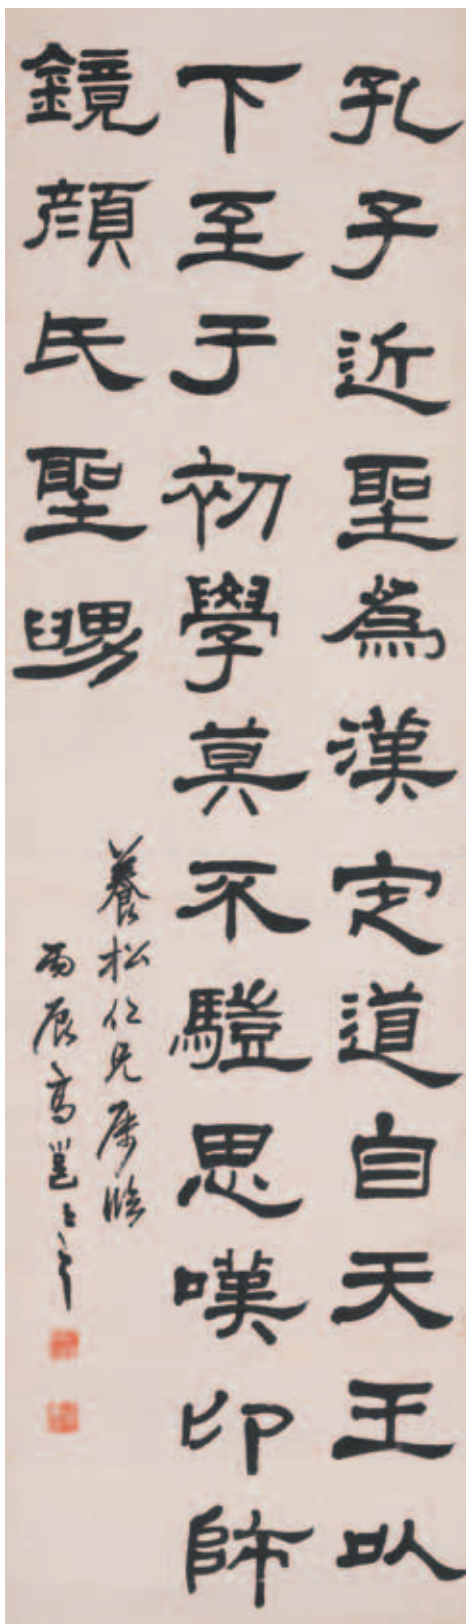 孔子近聖為漢定道自天王以
下至于初學莫不驥思嘆卬師
鏡顏氏聖舅
養松仁兄屬臨
丙辰高邕